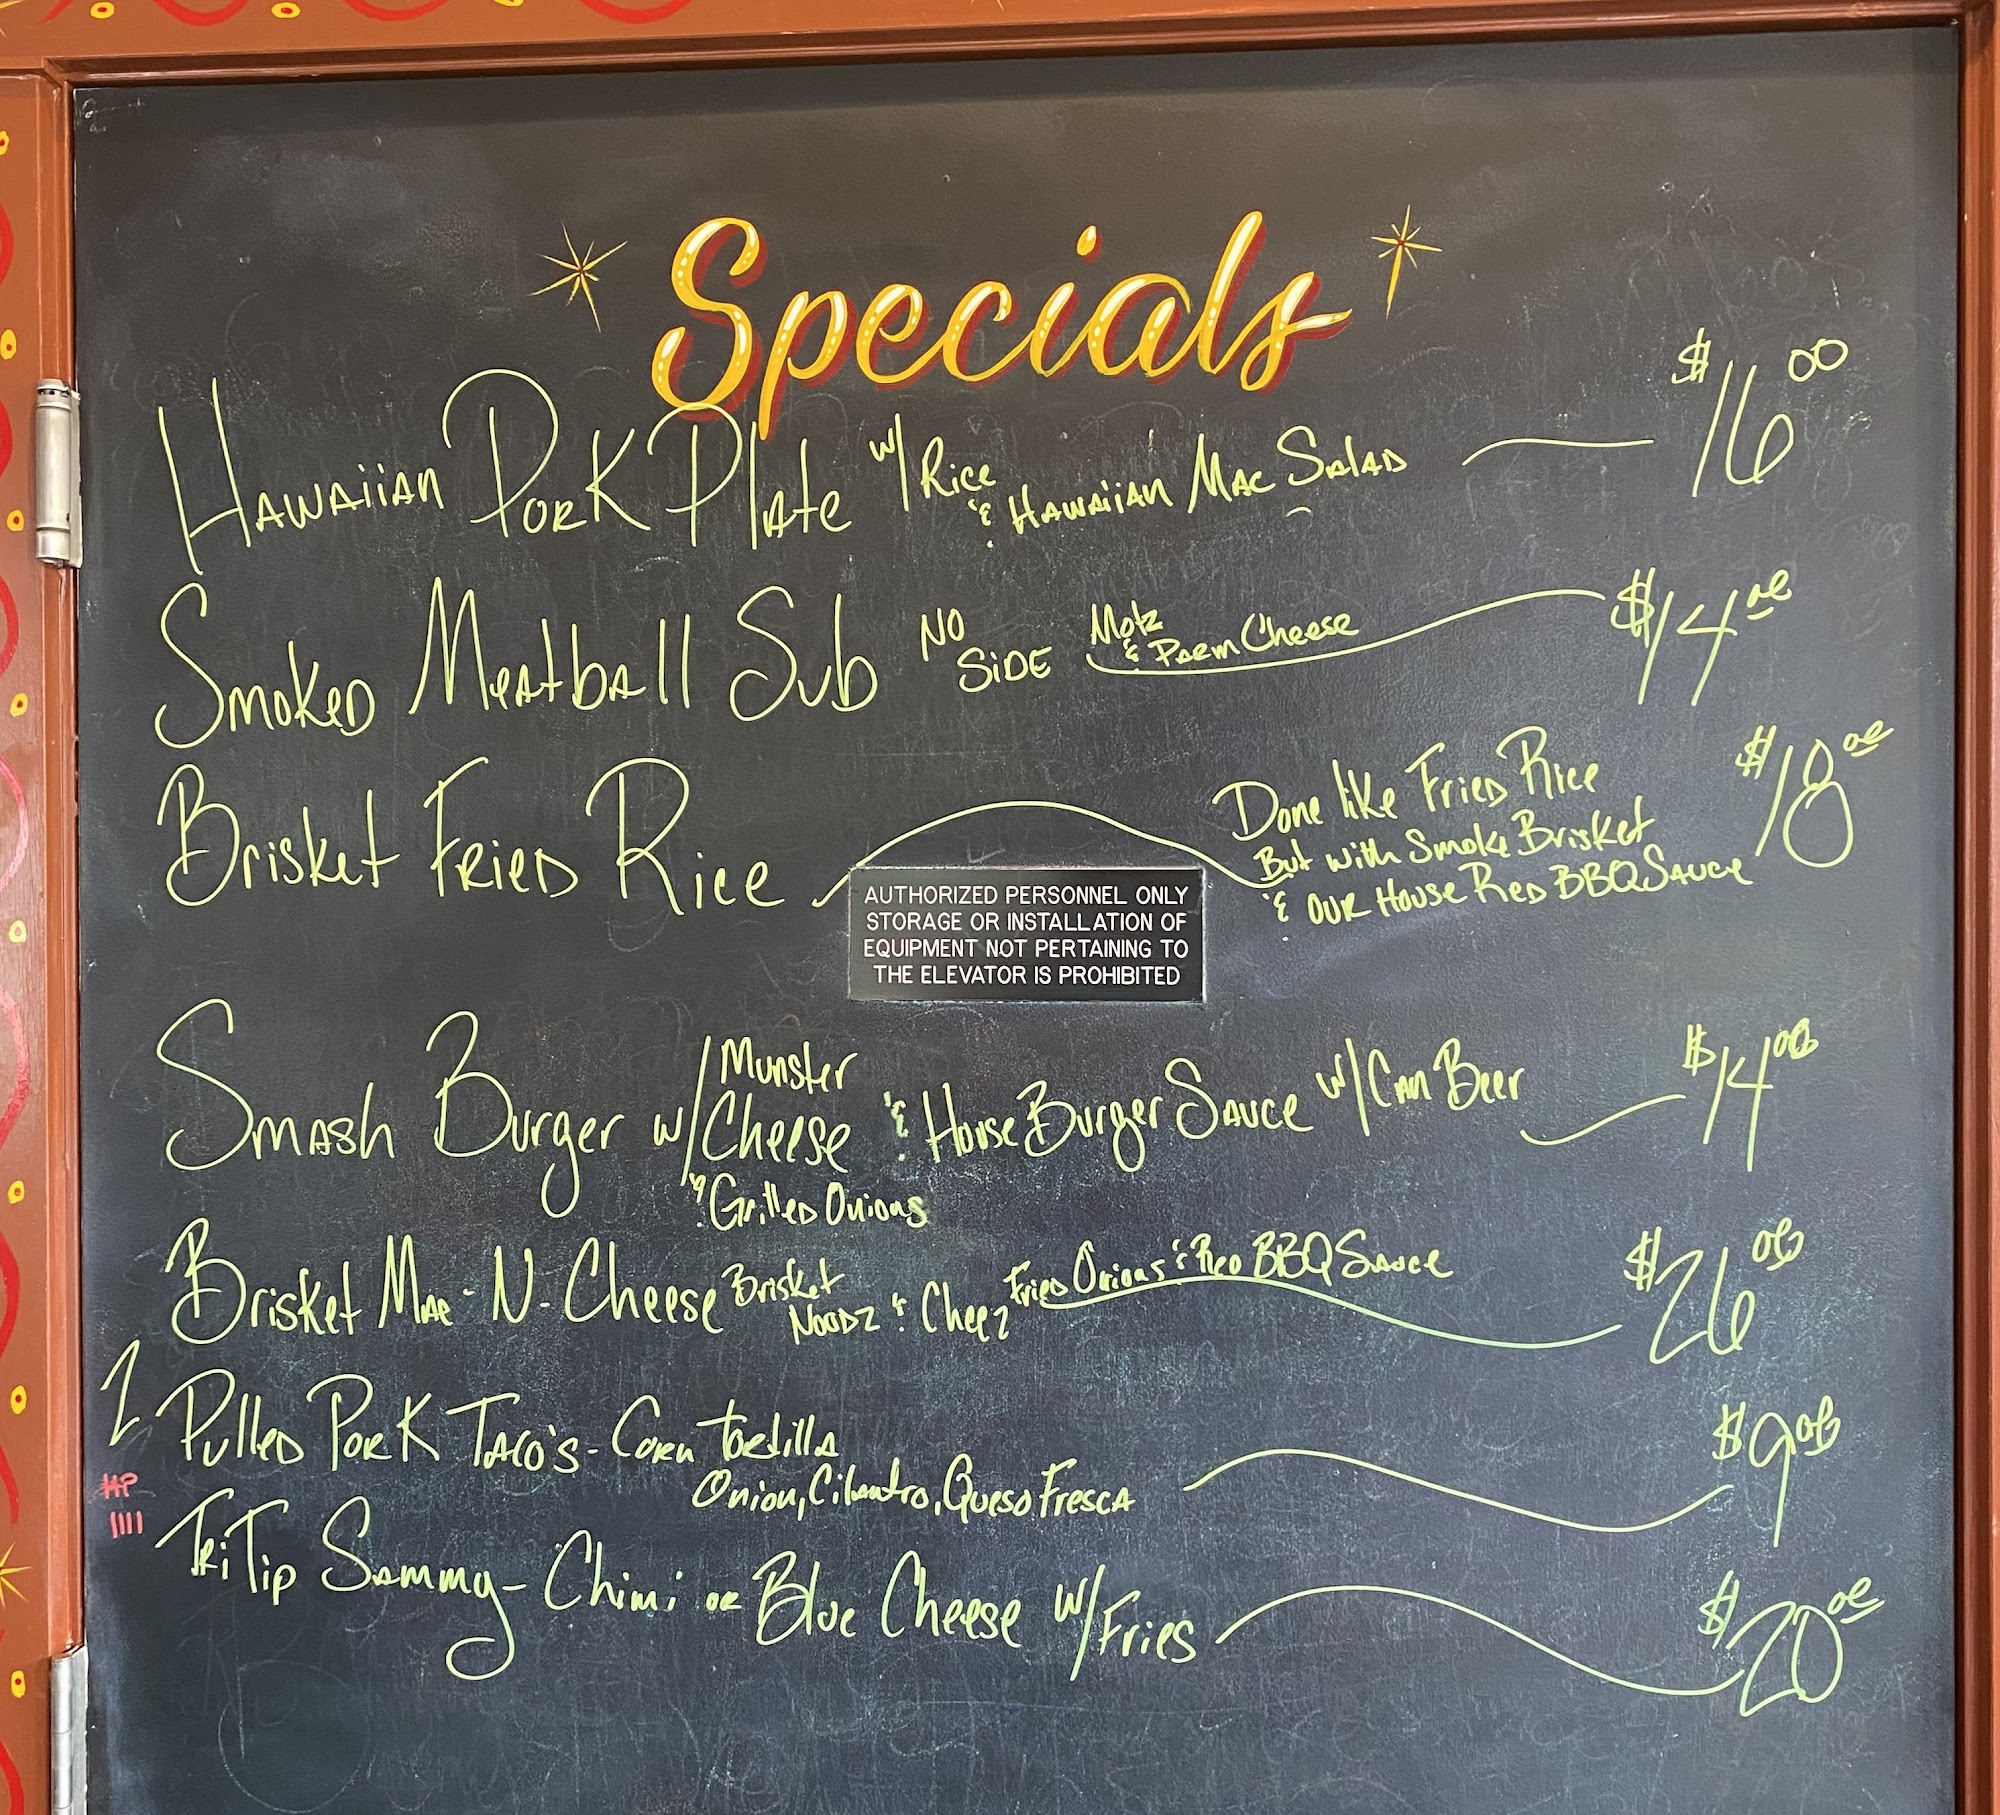 Specials
Hawaiian Pork Plate w/ Rice & Hawaiian Mac Salad $16.00
Smoked Meatball Sub No Side Motz & Parm Cheese $14.00
Brisket Fried Rice
Done like Fried Rice $18.00
But with Smoke Brisket
& our House Red BBQ Sauce
AUTHORIZED PERSONNEL ONLY
STORAGE OR INSTALLATION OF
EQUIPMENT NOT PERTAINING TO
THE ELEVATOR IS PROHIBITED
Smash Burger w/ Munster Cheese & House Burger Sauce w/ Can Beer $14.00
& Grilled Onions
Brisket Mac-N-Cheese Brisket Noodz & Cheez Fried Onions & Red BBQ Sauce $26.00
2 Pulled Pork Taco's - Corn Tortilla
Onion, Cilantro, Queso Fresca $9.00
HP
IIII
Tri Tip Sammy - Chimi or Blue Cheese w/ Fries $20.00